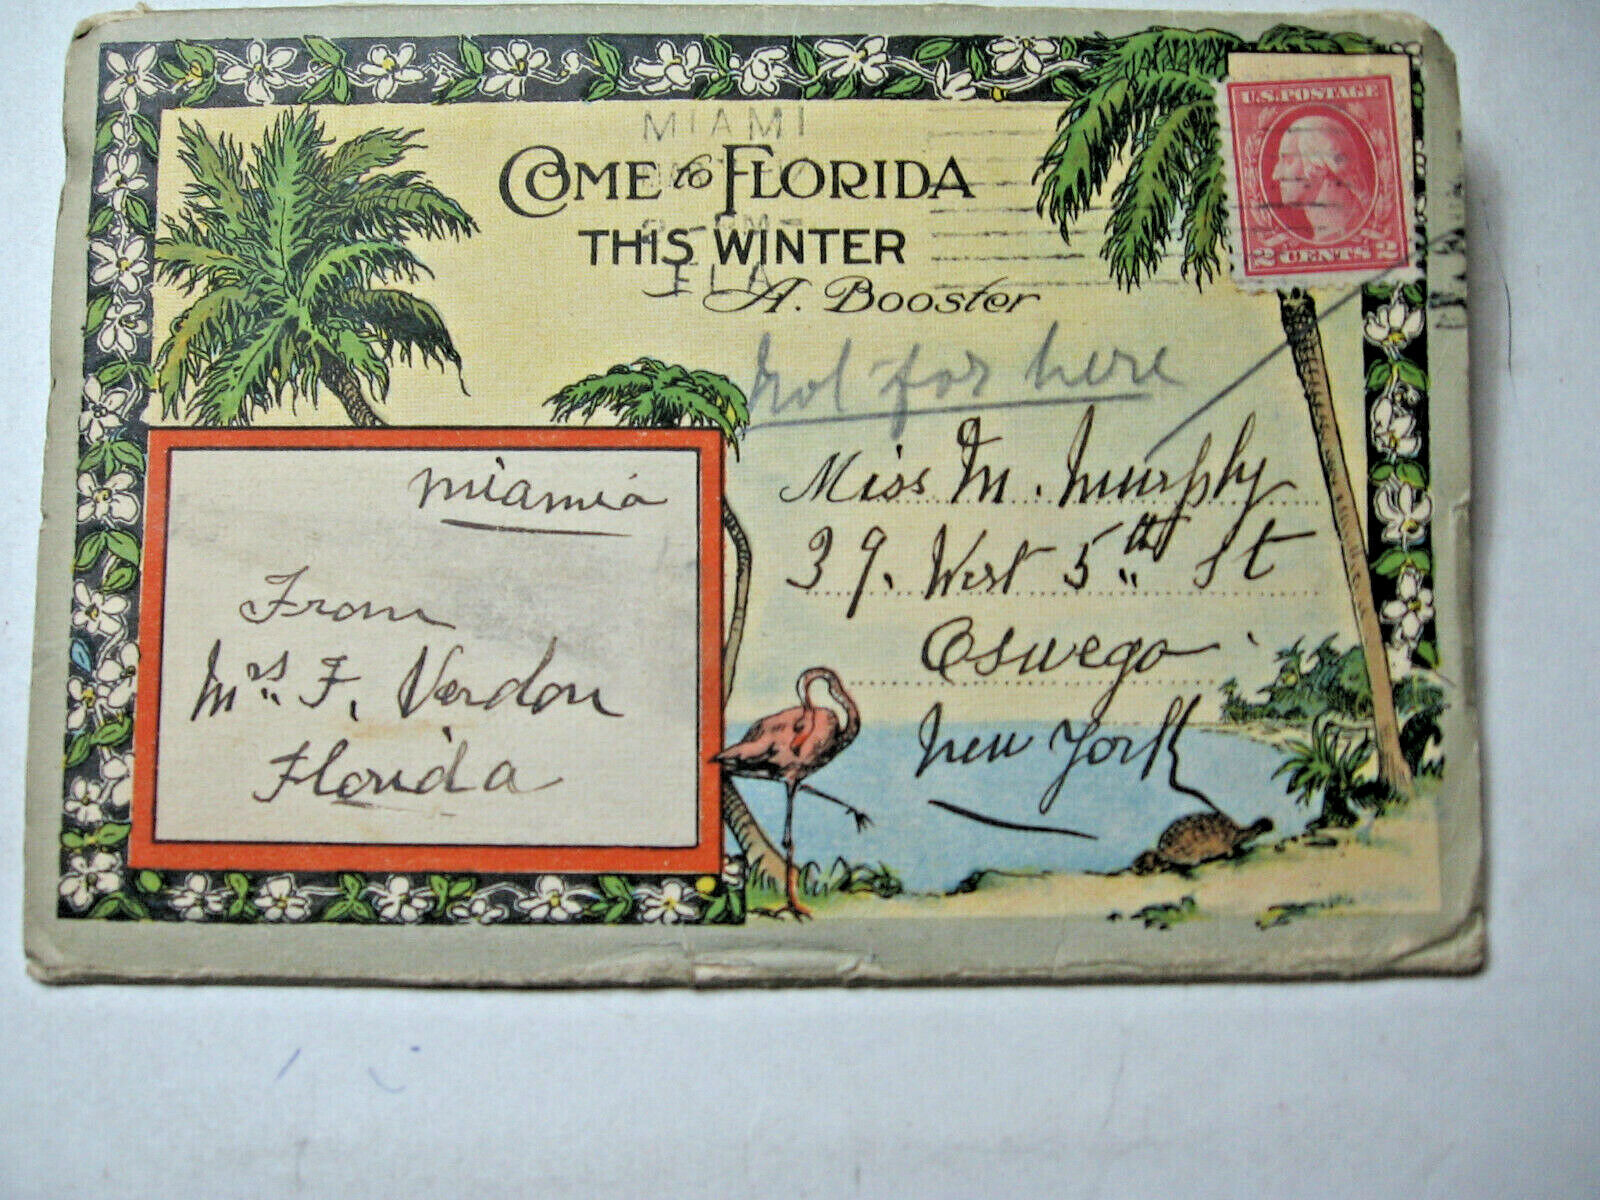 MIAMI
COME to FLORIDA
THIS WINTER
FLA
A. Booster
U.S. POSTAGE
2 CENTS 2
Not for here
Miss M. Murphy
39. West 5th St
Oswego
New York
miamia
From
Mrs F. Verdon
Florida